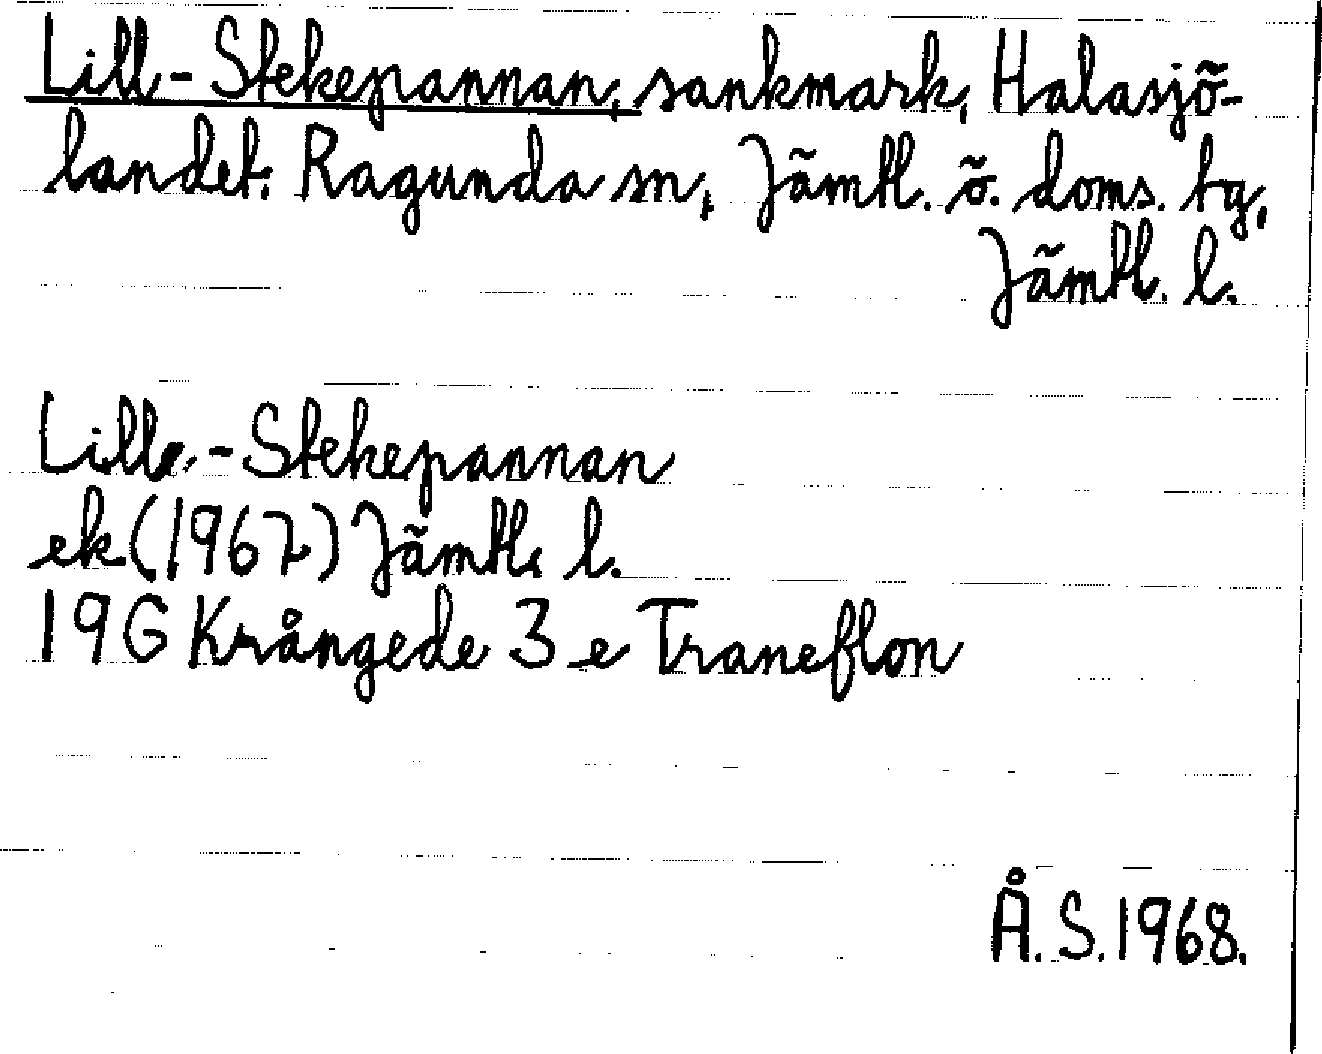 Lill-Stekepannan, sankmark, Halasjö-
landet. Ragunda sn, Jämtl. ö. doms. tg,
Jämtl. l.
Lille-Stekepannan
ek (1967) Jämtl. l.
19G Krångede 3 e Traneflon
Å. S. 1968.